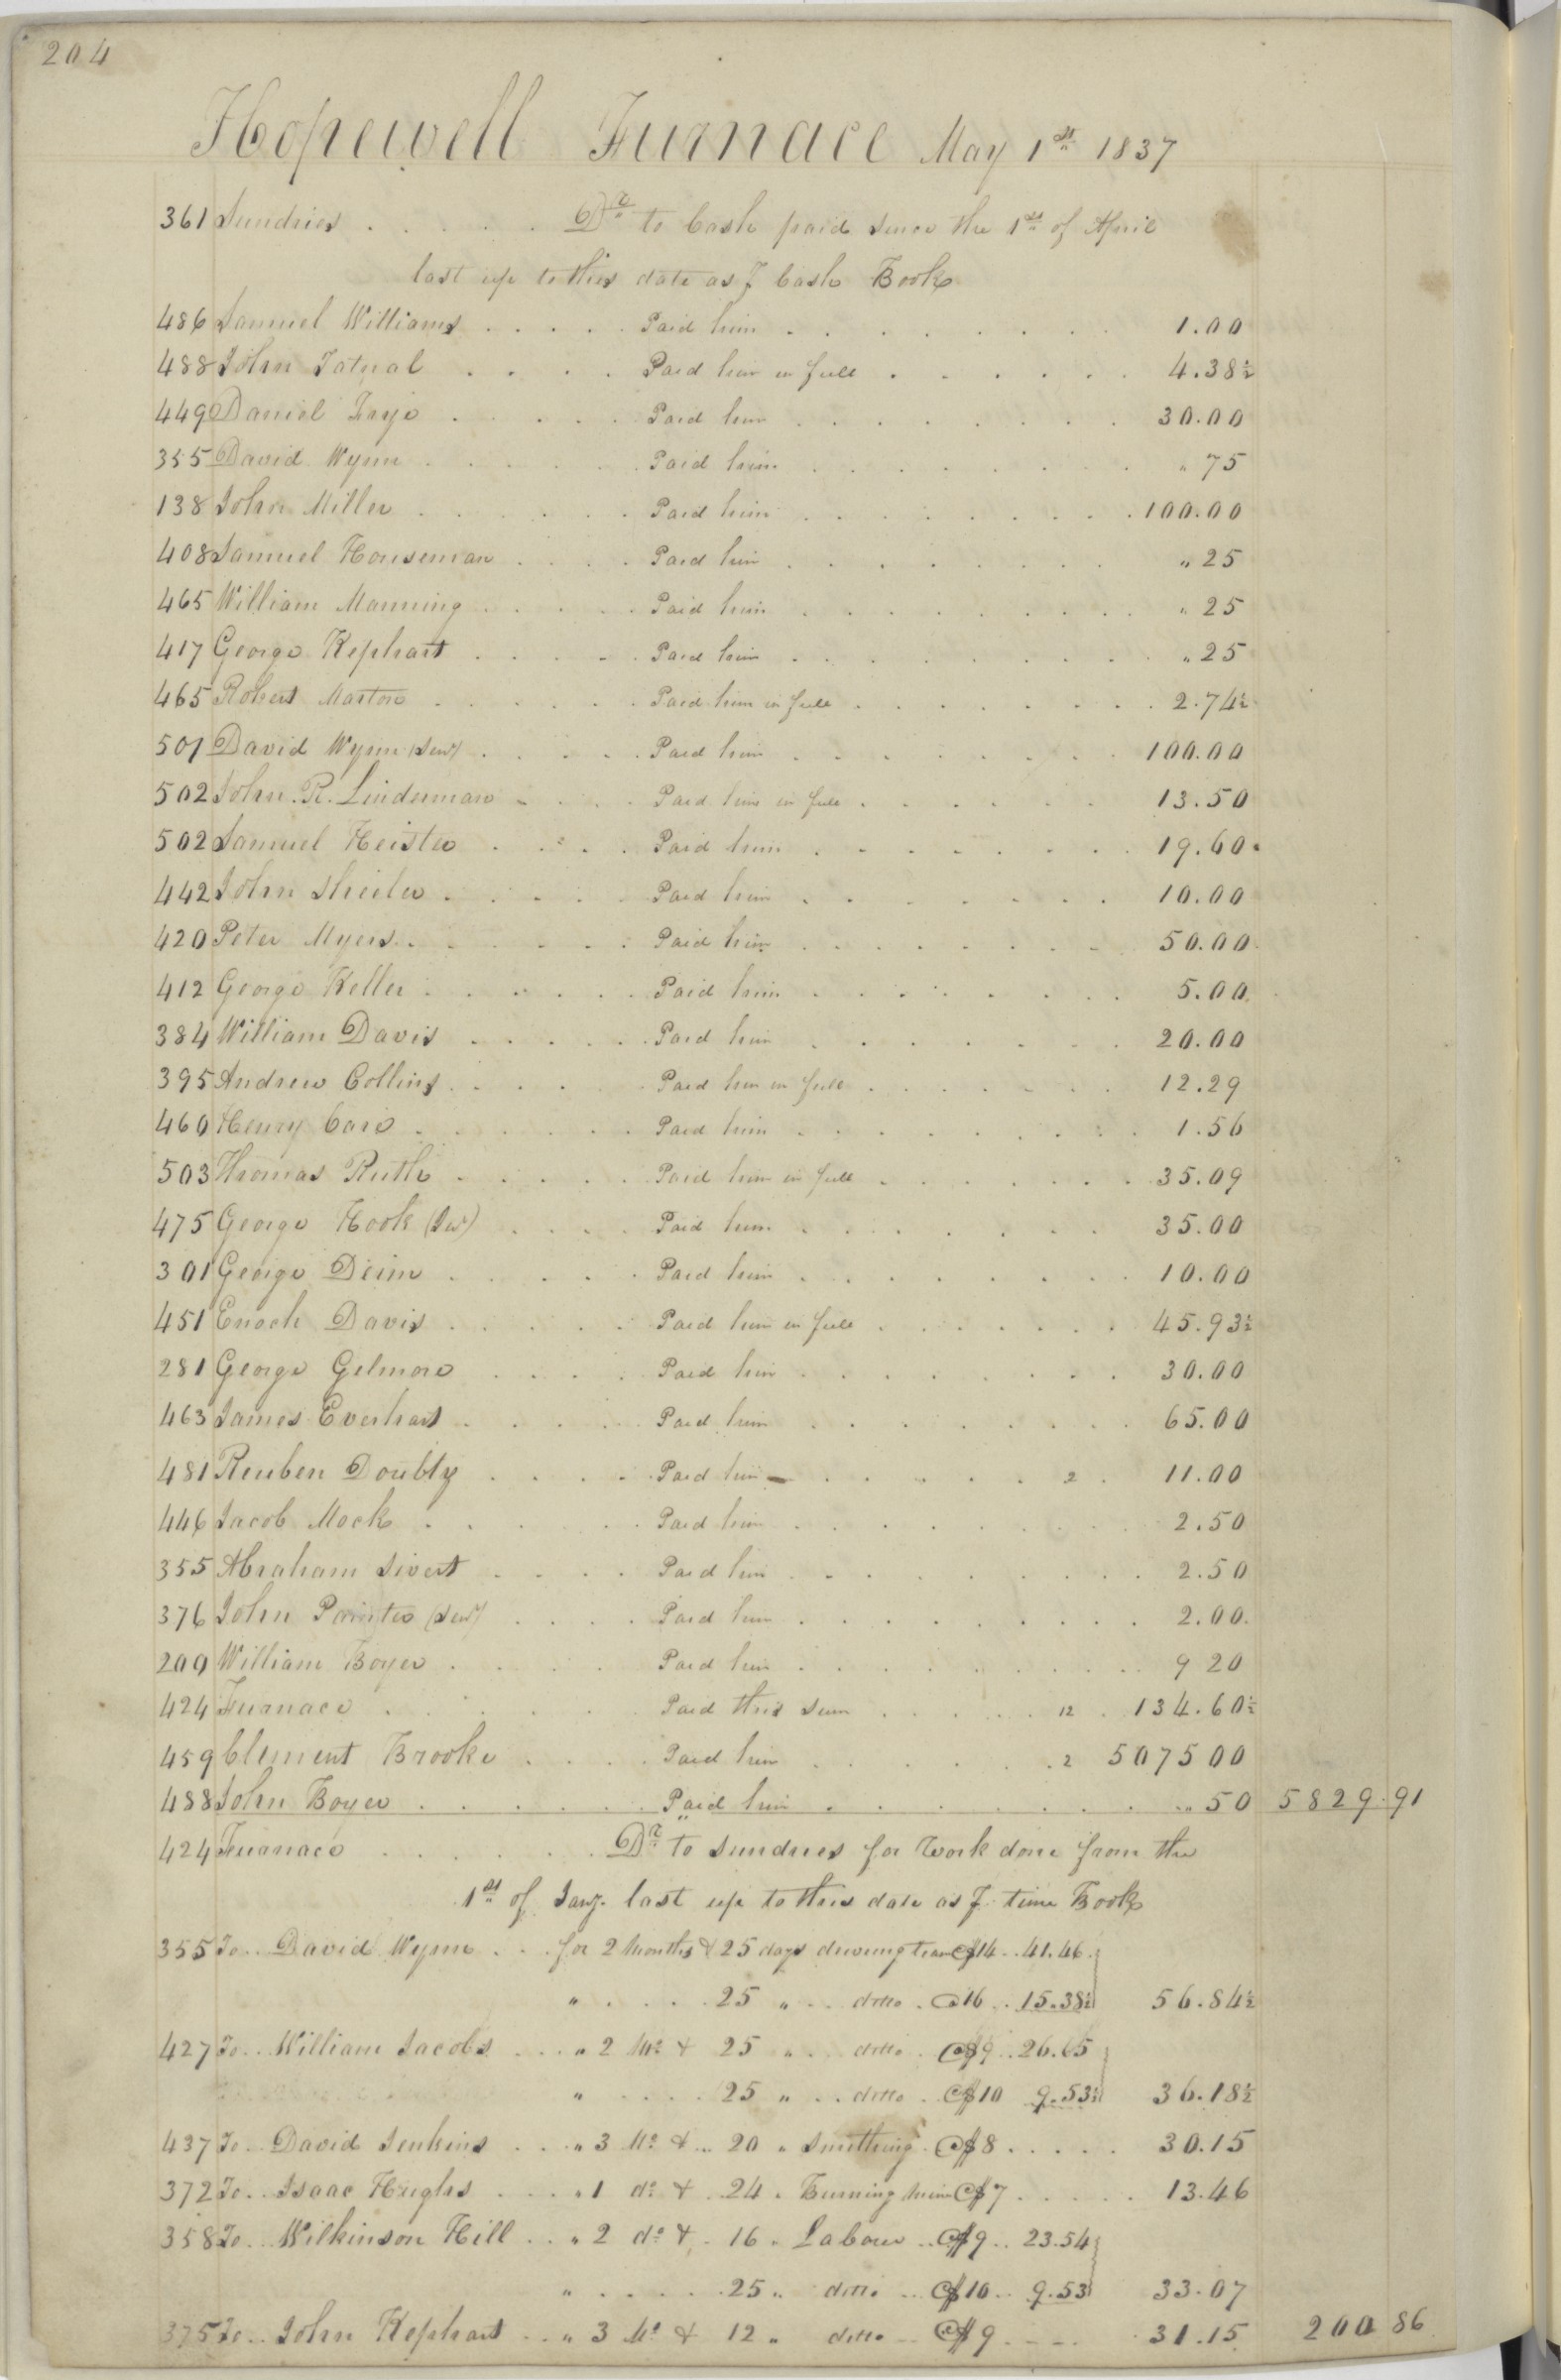 204
Hopewell Furnace May 1st 1837
361 Sundries . . . . . Dr to Cash paid since the 1st of April
last up to this date as ⅌ Cash Book
486 Samuel Williams . . . . Paid him . . . . 1.00
488 John Tatnal . . . . Paid him in full . . . . 4.38½
449 Daniel . . . . Paid him . . . . 30.00
355 David Wynn . . . . Paid him . . . . " 75
138 John Miller . . . . Paid him . . . . 100.00
408 Samuel Houseman . . . . Paid him . . . . " 25
465 William Manning . . . . Paid him . . . . " 25
417 George Kephart . . . . Paid him . . . . " 25
465 Robert Marton . . . . Paid him in full . . . . 2.74½
501 David Wynn (Senr) . . . . Paid him . . . . 100.00
502 John R. Linderman . . . . Paid him in full . . . . 13.50
502 Samuel Heister . . . . Paid him . . . . 19.60
442 John Sheeler . . . . Paid him . . . . 10.00
420 Peter Myers . . . . Paid him . . . . 50.00
412 George Keller . . . . Paid him . . . . 5.00
384 William Davis . . . . Paid him . . . . 20.00
395 Andrew Collins . . . . Paid him in full . . . . 12.29
460 Henry Care . . . . Paid him . . . . 1.56
503 Thomas Ruth . . . . Paid him in full . . . . 35.09
475 George Hook (Senr) . . . . Paid him . . . . 35.00
301 George Deim . . . . Paid him . . . . 10.00
451 Enoch Davis . . . . Paid him in full . . . . 45.93½
281 George Gilmore . . . . Paid him . . . . 30.00
463 James Everhart . . . . Paid him . . . . 65.00
481 Reuben Doubty . . . . Paid him . . . . 2 . 11.00
446 Jacob Mock . . . . Paid him . . . . 2.50
355 Abraham Sivert . . . . Paid him . . . . 2.50
376 John Painter (Senr) . . . . Paid him . . . . 2.00
200 William Boyer . . . . Paid him . . . . 9 20
424 Furnace . . . . Paid this sum . . . . 12 . 134.60½
459 Clement Brooke . . . . Paid him . . . . 2 5075 00
488 John Boyer . . . . Paid him . . . . " 50 5829.91
424 Furnace . . . . Dr to Sundries for work done from the
1st of Jany. last up to this date as ⅌ time Book
355 To .. David Wynn . . for 2 Months & 25 days driving team @$14 .. 41.46
" . . . . 25 " .. ditto . @16 .. 15.38½ 56.84½
427 To .. William Jacobs . . . " 2 Mo & 25 " .. ditto . @$9 .. 26.65
" . . . . 25 " .. ditto . @$10 9.53½ 36.18½
437 To .. David Jenkins . . . " 3 Mo & .. 20 " Smithing . @$8 . . . . . 30.15
372 To .. Isaac Hughs . . . " 1 do & . 24 " Burning mine @$7 . . . . . 13.46
358 To .. Wilkinson Hill . . " 2 do & . 16 " Labour .. @$9 .. 23.54
" . . . . 25 " ditto .. @$10 .. 9.53 33.07
375 To .. John Kephart . . " 3 Mo & 12 " ditto .. @$9 . . . . 31.15 200 86